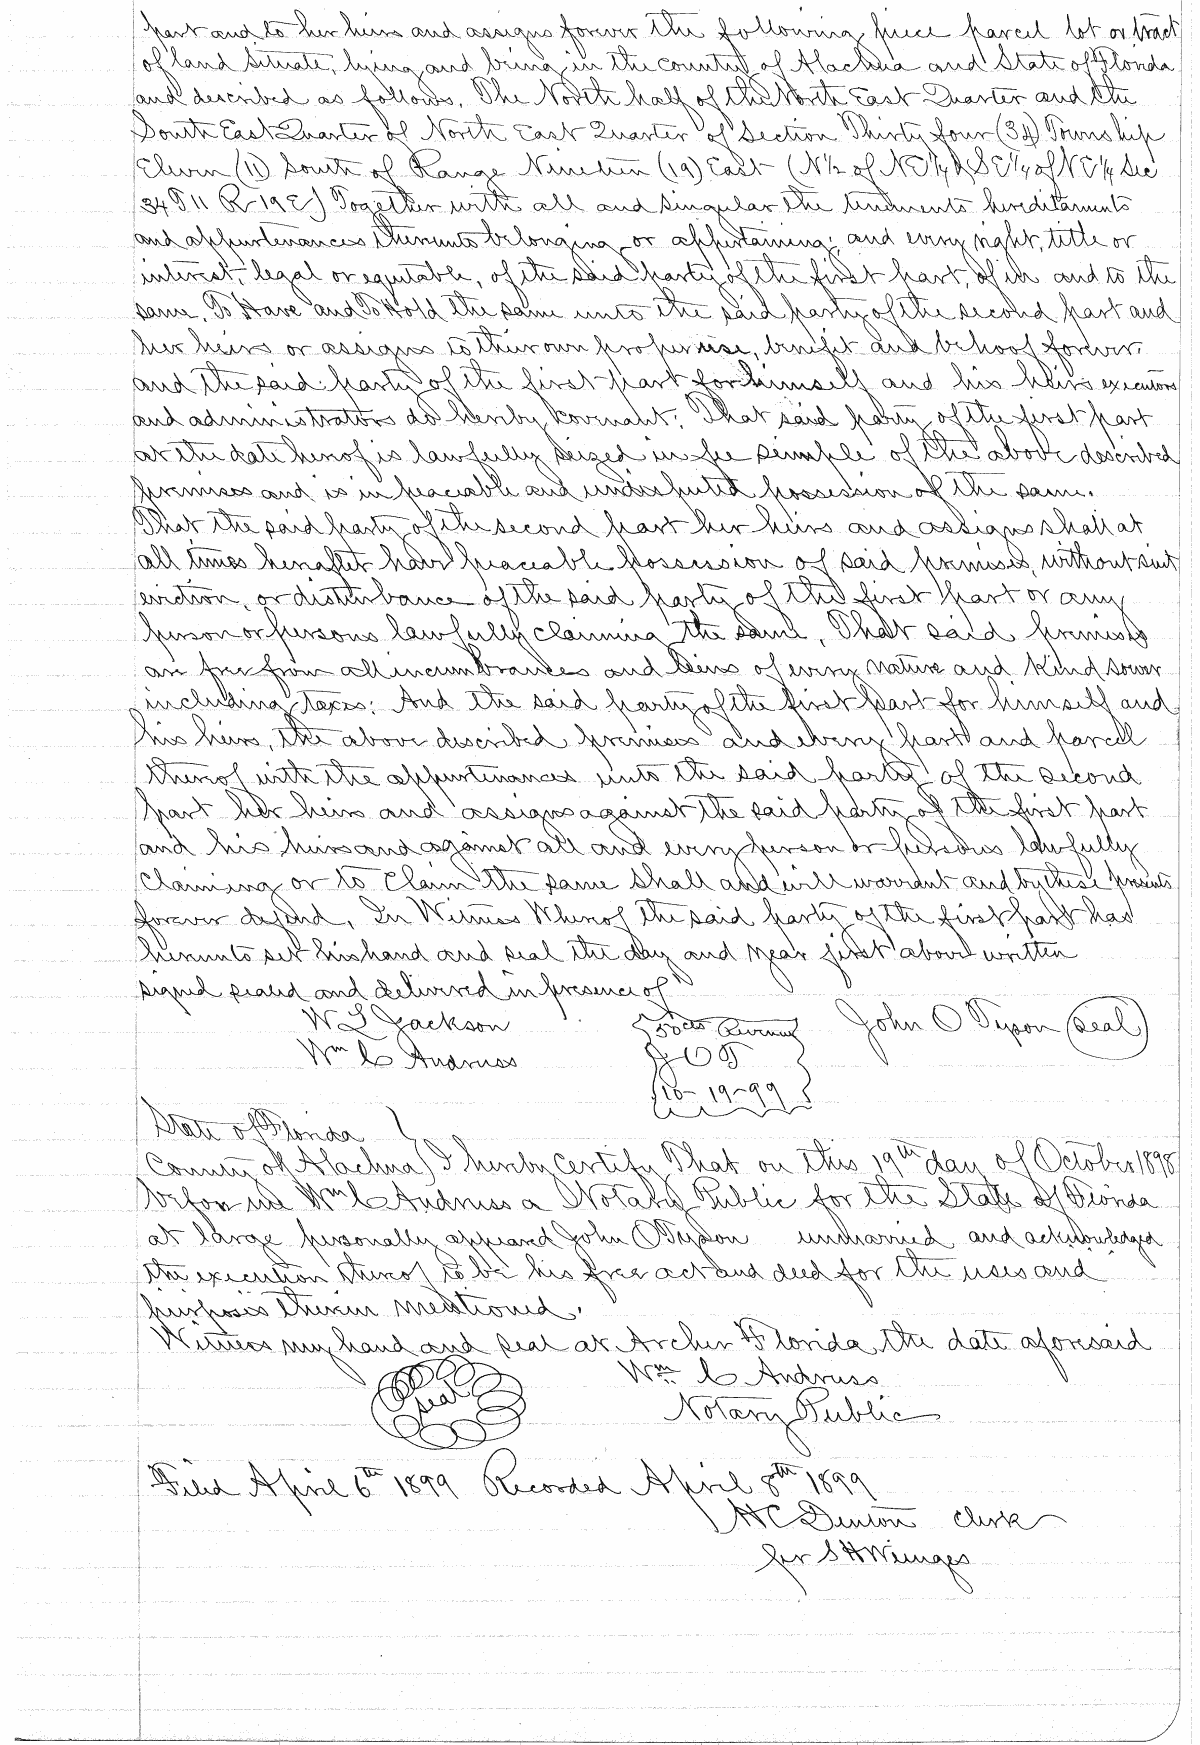 part and to her heirs and assigns forever the following piece parcel lot or tract
of land situate, lying and being in the county of Alachua and State of Florida
and described as follows. The North half of the North East Quarter and the
South East Quarter of North East Quarter of Section Thirty four (34) Township
Eleven (11) South of Range Nineteen (19) East (N½ of NE¼ & SE¼ of NE¼ Sec
34 T 11 R 19 E) Together with all and singular the tenements hereditaments
and appurtenances thereunto belonging or appertaining; and every right, title or
interest, legal or equitable, of the said party of the first part, of in and to the
same. To Have and To Hold the same unto the said party of the second part and
her heirs or assigns to their own proper use, benefit and behoof forever.
and the said party of the first part for himself and his heirs executors
and administrators do hereby covenant: That said party of the first part
at the date hereof is lawfully seized in fee simple of the above described
premises and is in peaceable and undisputed possession of the same.
That the said party of the second part her heirs and assigns shall at
all times hereafter have peaceable possession of said premises, without suit
eviction, or disturbance of the said party of the first part or any
person or persons lawfully claiming the same, That said premises
are free from all incumbrances and leins of every nature and kind sower
including taxes: And the said party of the first part for himself and
his heirs, the above described premises and every part and parcell
thereof with the appurtenances unto the said party of the second
part her heirs and assigns against the said party of the first part
and his heirs and against all and every person or persons lawfully
claiming or to claim the same shall and will warrant and by these presents
forever defend, In Witness Whereof the said party of the first part has
hereunto set his hand and seal the day and year first above written
signed sealed and delivered in presence of
W L Jackson 50 cts Revenue John O Tyson (seal)
Wm C Andruss J O T
10-19-99
State of Florida
County of Alachua) I hereby certify That on this 19th day of October 1898
before me Wm C Andruss a Notary Public for the State of Florida
at large personally appeared John O Tyson unmarried and acknowledged
the execution thereof to be his free act and deed for the uses and
purposes therein mentioned.
Witness my hand and seal at Archer Florida the date aforesaid
seal Wm C Andruss
Notary Public
Filed April 6th 1899 Recorded April 8th 1899
H C Denton Clerk
per S H Wienges